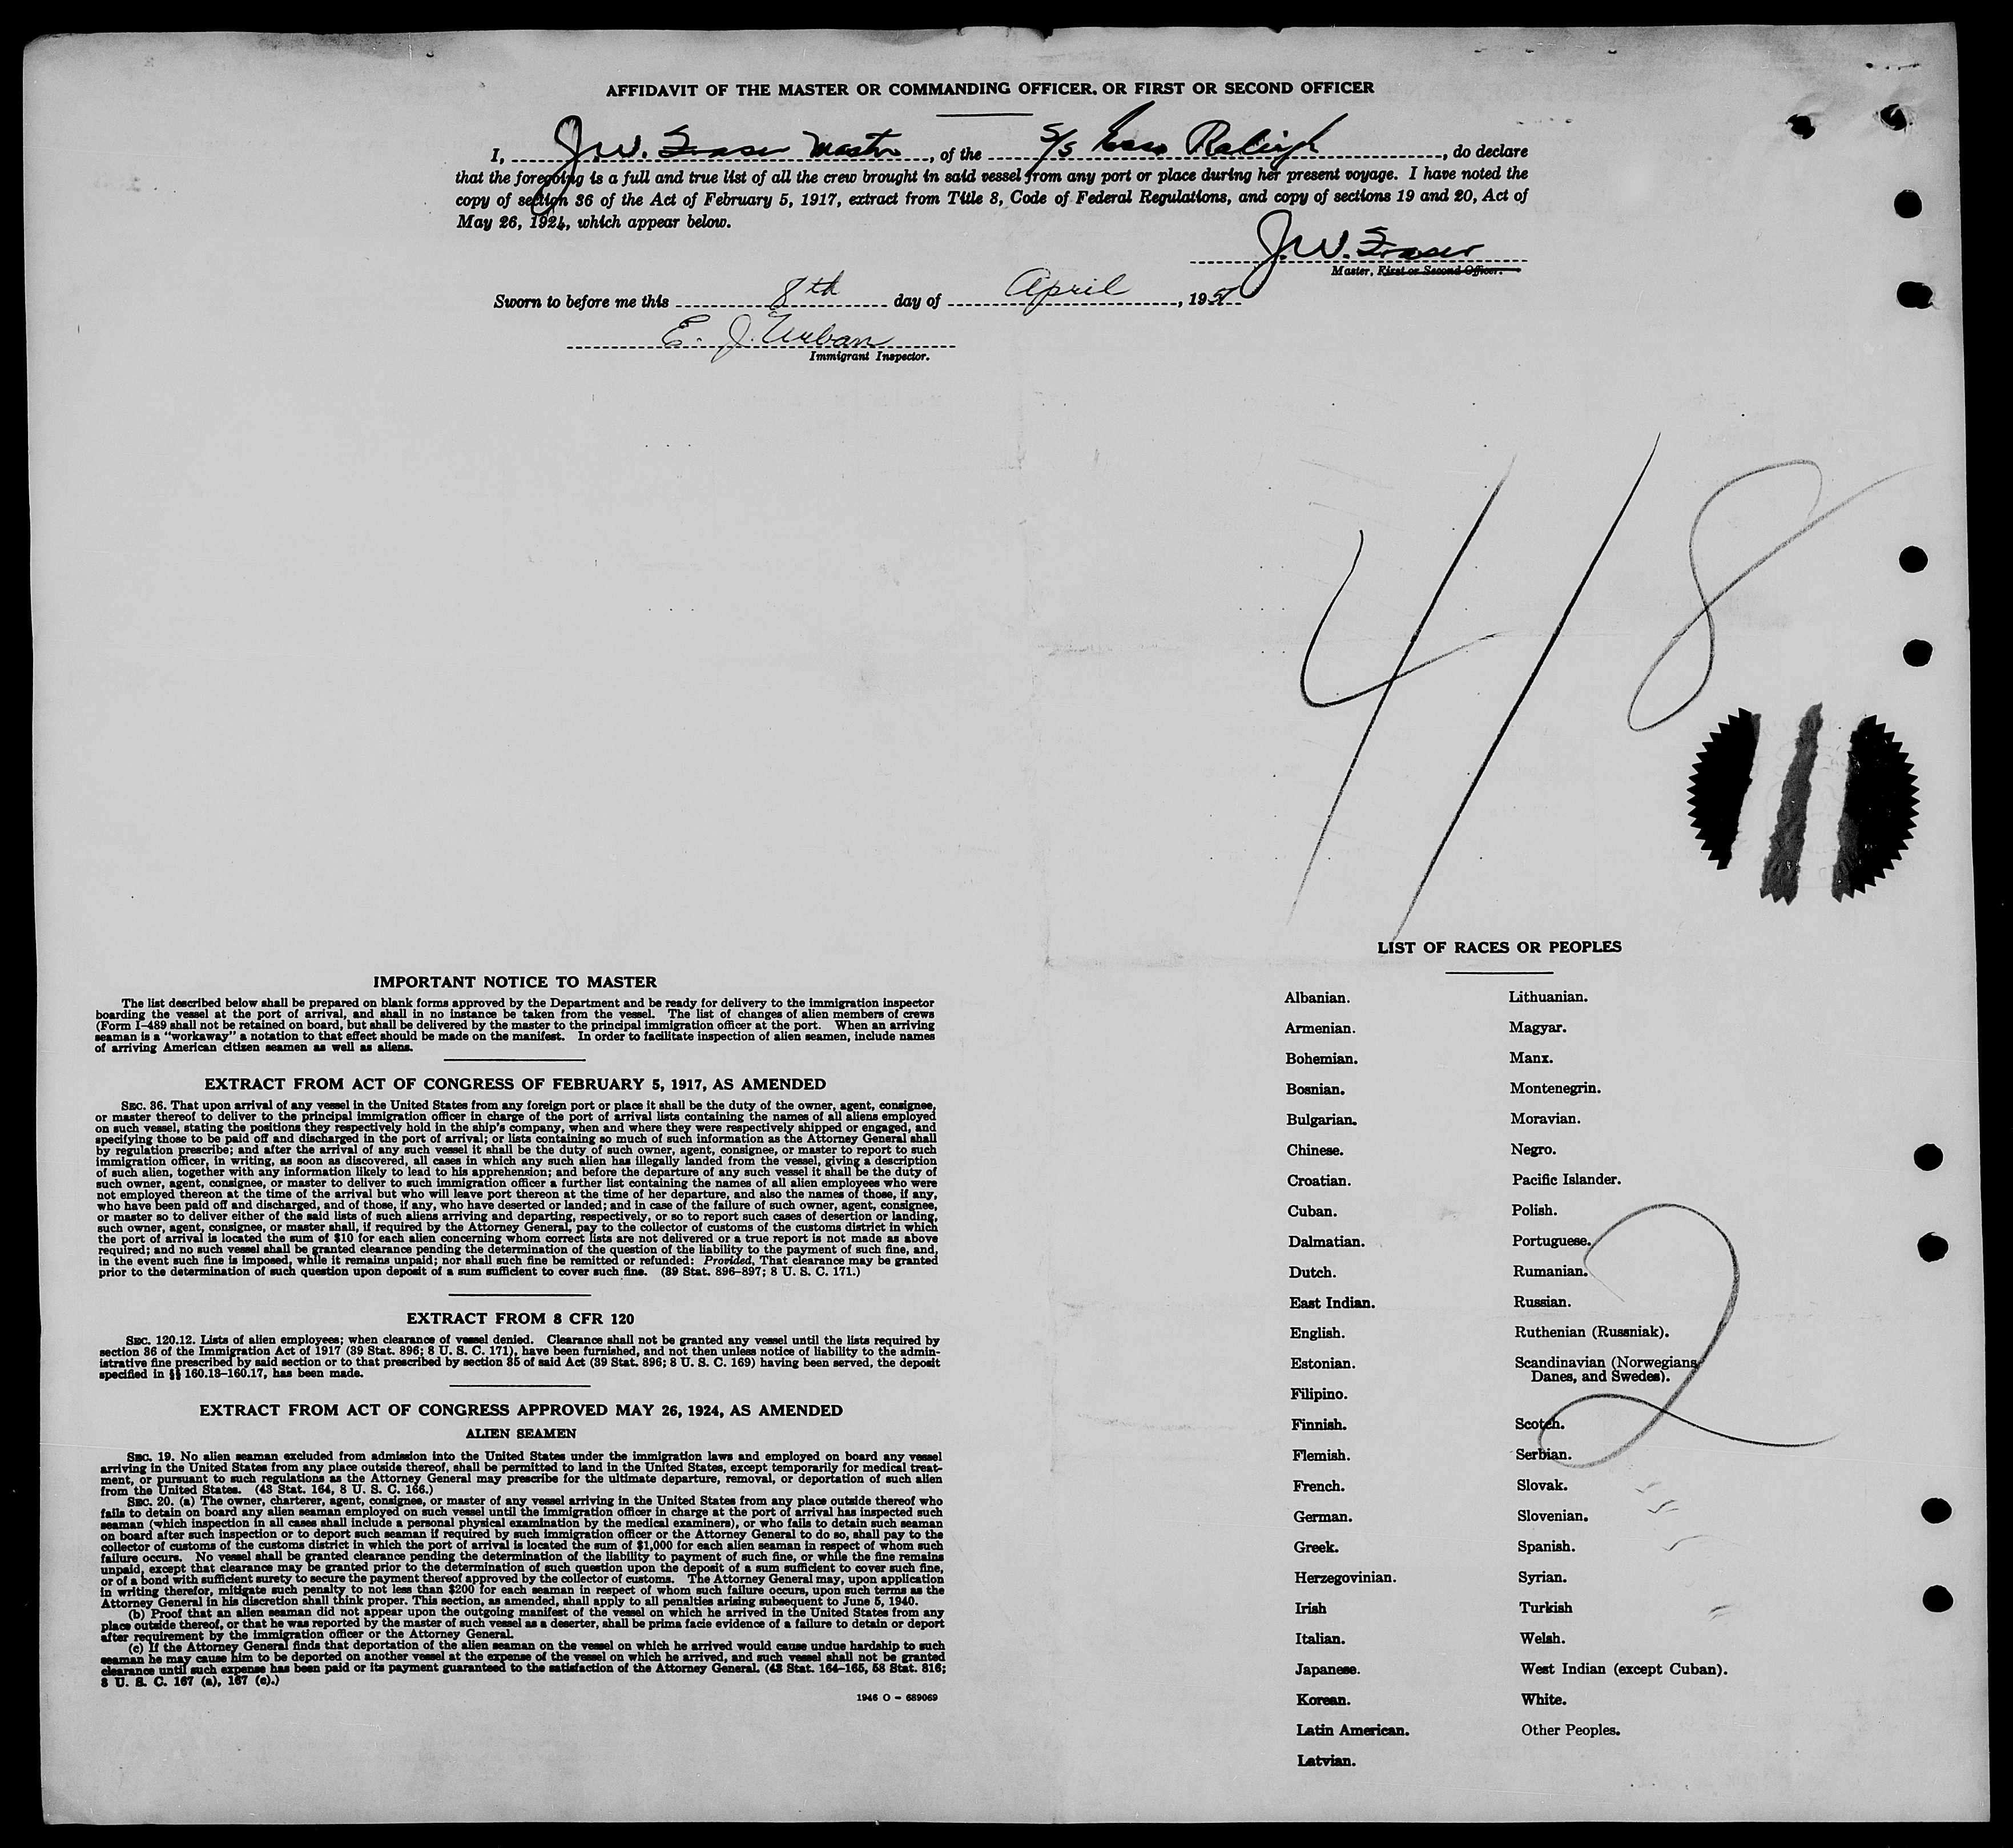 AFFIDAVIT OF THE MASTER OR COMMANDING OFFICER, OR FIRST OR SECOND OFFICER
I, J.W. Fraser Master, of the S/S Esso Raleigh, do declare
that the foregoing is a full and true list of all the crew brought in said vessel from any port or place during her present voyage. I have noted the
copy of section 36 of the Act of February 5, 1917, extract from Title 8, Code of Federal Regulations, and copy of sections 19 and 20, Act of
May 26, 1924, which appear below.
J.W. Fraser
Master, First or Second Officer.
Sworn to before me this 8th day of April, 1951
E. J. Urban
Immigrant Inspector.
4/8
IMPORTANT NOTICE TO MASTER
The list described below shall be prepared on blank forms approved by the Department and be ready for delivery to the immigration inspector
boarding the vessel at the port of arrival, and shall in no instance be taken from the vessel. The list of changes of alien members of crews
(Form I-489 shall not be retained on board, but shall be delivered by the master to the principal immigration officer at the port. When an arriving
seaman is a "workaway" a notation to that effect should be made on the manifest. In order to facilitate inspection of alien seamen, include names
of arriving American citizen seamen as well as aliens.
EXTRACT FROM ACT OF CONGRESS OF FEBRUARY 5, 1917, AS AMENDED
SEC. 36. That upon arrival of any vessel in the United States from any foreign port or place it shall be the duty of the owner, agent, consignee,
or master thereof to deliver to the principal immigration officer in charge of the port of arrival lists containing the names of all aliens employed
on such vessel, stating the positions they respectively hold in the ship's company, when and where they were respectively shipped or engaged, and
specifying those to be paid off and discharged in the port of arrival; or lists containing so much of such information as the Attorney General shall
by regulation prescribe; and after the arrival of any such vessel it shall be the duty of such owner, agent, consignee, or master to report to such
immigration officer, in writing, as soon as discovered, all cases in which any such alien has illegally landed from the vessel, giving a description
of such alien, together with any information likely to lead to his apprehension; and before the departure of any such vessel it shall be the duty of
such owner, agent, consignee, or master to deliver to such immigration officer a further list containing the names of all alien employees who were
not employed thereon at the time of the arrival but who will leave port thereon at the time of her departure, and also the names of those, if any,
who have been paid off and discharged, and of those, if any, who have deserted or landed; and in case of the failure of such owner, agent, consignee,
or master so to deliver either of the said lists of such aliens arriving and departing, respectively, or so to report such cases of desertion or landing,
such owner, agent, consignee, or master shall, if required by the Attorney General, pay to the collector of customs of the customs district in which
the port of arrival is located the sum of $10 for each alien concerning whom correct lists are not delivered or a true report is not made as above
required; and no such vessel shall be granted clearance pending the determination of the question of the liability to the payment of such fine, and,
in the event such fine is imposed, while it remains unpaid; nor shall such fine be remitted or refunded: Provided, That clearance may be granted
prior to the determination of such question upon deposit of a sum sufficient to cover such fine. (39 Stat. 896-897; 8 U. S. C. 171.)
EXTRACT FROM 8 CFR 120
SEC. 120.12. Lists of alien employees; when clearance of vessel denied. Clearance shall not be granted any vessel until the lists required by
section 36 of the Immigration Act of 1917 (39 Stat. 896; 8 U. S. C. 171), have been furnished, and not then unless notice of liability to the admin-
istrative fine prescribed by said section or to that prescribed by section 35 of said Act (39 Stat. 896; 8 U. S. C. 169) having been served, the deposit
specified in §§ 160.13-160.17, has been made.
EXTRACT FROM ACT OF CONGRESS APPROVED MAY 26, 1924, AS AMENDED
ALIEN SEAMEN
SEC. 19. No alien seaman excluded from admission into the United States under the immigration laws and employed on board any vessel
arriving in the United States from any place outside thereof, shall be permitted to land in the United States, except temporarily for medical treat-
ment, or pursuant to such regulations as the Attorney General may prescribe for the ultimate departure, removal, or deportation of such alien
from the United States. (43 Stat. 164, 8 U. S. C. 166.)
SEC. 20. (a) The owner, charterer, agent, consignee, or master of any vessel arriving in the United States from any place outside thereof who
fails to detain on board any alien seaman employed on such vessel until the immigration officer in charge at the port of arrival has inspected such
seaman (which inspection in all cases shall include a personal physical examination by the medical examiners), or who fails to detain such seaman
on board after such inspection or to deport such seaman if required by such immigration officer or the Attorney General to do so, shall pay to the
collector of customs of the customs district in which the port of arrival is located the sum of $1,000 for each alien seaman in respect of whom such
failure occurs. No vessel shall be granted clearance pending the determination of the liability to payment of such fine, or while the fine remains
unpaid, except that clearance may be granted prior to the determination of such question upon the deposit of a sum sufficient to cover such fine,
or of a bond with sufficient surety to secure the payment thereof approved by the collector of customs. The Attorney General may, upon application
in writing therefor, mitigate such penalty to not less than $200 for each seaman in respect of whom such failure occurs, upon such terms as the
Attorney General in his discretion shall think proper. This section, as amended, shall apply to all penalties arising subsequent to June 5, 1940.
(b) Proof that an alien seaman did not appear upon the outgoing manifest of the vessel on which he arrived in the United States from any
place outside thereof, or that he was reported by the master of such vessel as a deserter, shall be prima facie evidence of a failure to detain or deport
after requirement by the immigration officer or the Attorney General.
(c) If the Attorney General finds that deportation of the alien seaman on the vessel on which he arrived would cause undue hardship to such
seaman he may cause him to be deported on another vessel at the expense of the vessel on which he arrived, and such vessel shall not be granted
clearance until such expense has been paid or its payment guaranteed to the satisfaction of the Attorney General. (43 Stat. 164-165, 58 Stat. 816;
8 U. S. C. 167 (a), 167 (c).)
1946 O - 689069
LIST OF RACES OR PEOPLES
Albanian.
Armenian.
Bohemian.
Bosnian.
Bulgarian.
Chinese.
Croatian.
Cuban.
Dalmatian.
Dutch.
East Indian.
English.
Estonian.
Filipino.
Finnish.
Flemish.
French.
German.
Greek.
Herzegovinian.
Irish
Italian.
Japanese.
Korean.
Latin American.
Latvian.
Lithuanian.
Magyar.
Manx.
Montenegrin.
Moravian.
Negro.
Pacific Islander.
Polish.
Portuguese.
Rumanian.
Russian.
Ruthenian (Russniak).
Scandinavian (Norwegians,
Danes, and Swedes).
Scotch.
Serbian.
Slovak.
Slovenian.
Spanish.
Syrian.
Turkish
Welsh.
West Indian (except Cuban).
White.
Other Peoples.
2